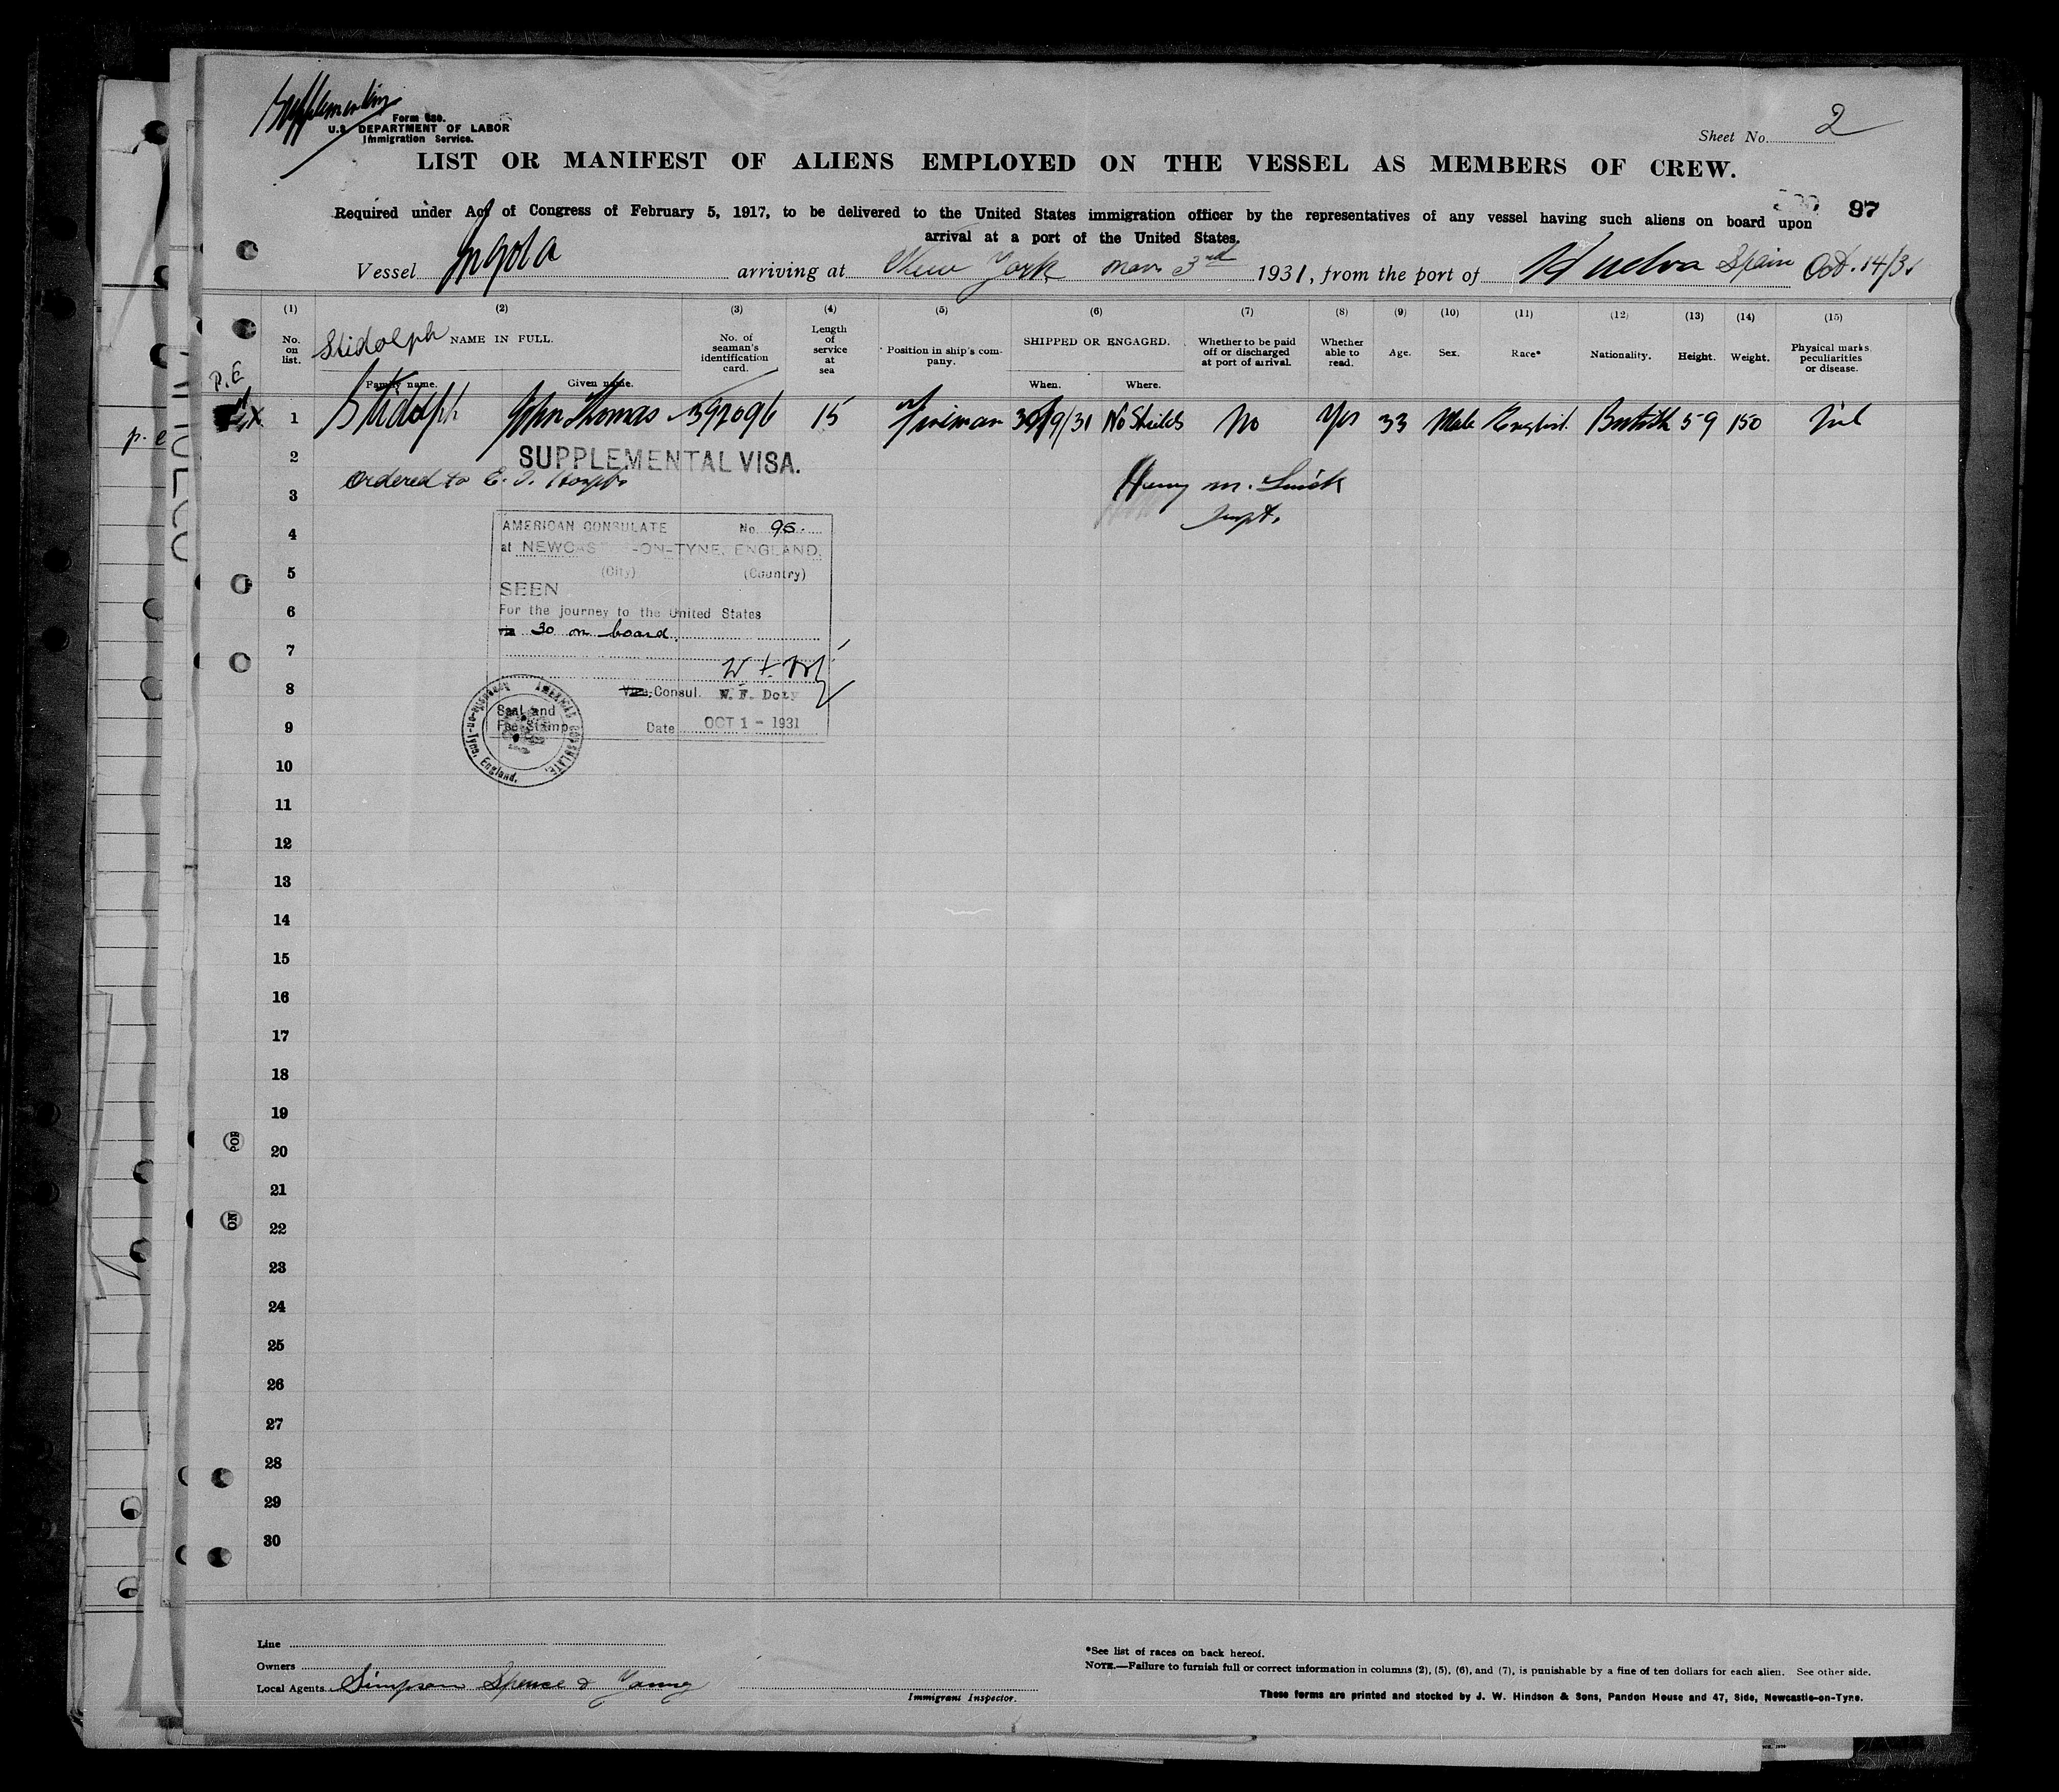 Supplementary
Form 680.
U.S. DEPARTMENT OF LABOR
Immigration Service.
Sheet No. 2
LIST OR MANIFEST OF ALIENS EMPLOYED ON THE VESSEL AS MEMBERS OF CREW.
97
Required under Act of Congress of February 5, 1917, to be delivered to the United States immigration officer by the representatives of any vessel having such aliens on board upon
arrival at a port of the United States.
Vessel Ingola arriving at New York 3rd 1931, from the port of Huelva Spain Oct. 14/31
(1) (2) (3) (4) (5) (6) (7) (8) (9) (10) (11) (12) (13) (14) (15)
No. on list. Stidolph NAME IN FULL. No. of seaman's identification card. Length of service at sea Position in ship's company. SHIPPED OR ENGAGED. Whether to be paid off or discharged at port of arrival. Whether able to read. Age. Sex. Race* Nationality. Height. Weight. Physical marks, peculiarities or disease.
Family name. Given name. When. Where.
P.E
1 Stidolph John Thomas 392096 15 Fireman 30/9/31 No Shields No Yes 33 Male English British 5 9 150 Nil
p. e
2
SUPPLEMENTAL VISA.
Ordered to E. I. Hospt.
3
Henry M.
Supt.
AMERICAN CONSULATE No. 96.
4
at NEWCAS -ON-TYNE, ENGLAND.
(City) (Country)
5
SEEN
6
For the journey to the United States
via 30 on board.
7
8
Vice Consul. W. F. Doty
Seal and
Fee Stamp
AMERICAN CONSULATE, Newcastle-on-Tyne, England.
9
Date OCT 1 - 1931
10
11
12
13
14
15
16
17
18
19
20
21
22
23
24
25
26
27
28
29
30
Line
Owners
Local Agents Simpson Spence & Young
Immigrant Inspector.
*See list of races on back hereof.
NOTE.—Failure to furnish full or correct information in columns (2), (5), (6), and (7), is punishable by a fine of ten dollars for each alien. See other side.
These forms are printed and stocked by J. W. Hindson & Sons, Pandon House and 47, Side, Newcastle-on-Tyne.